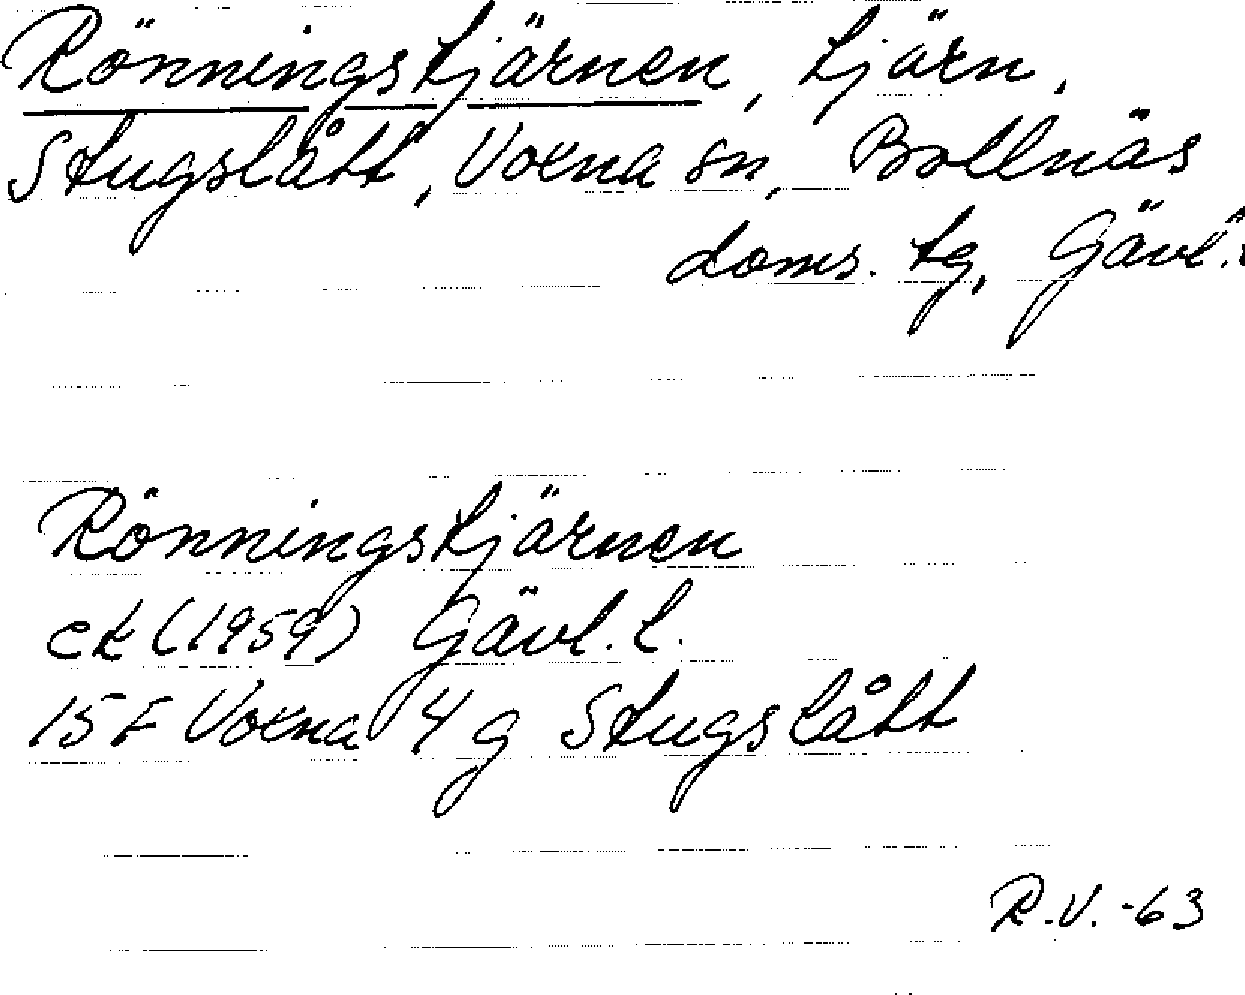 Rönningstjärnen, tjärn,
Stugslått, Voxna sn, Bollnäs
doms. tg, Gävl.
Rönningstjärnen
ek (1959) Gävl. l.
15 F Voxna 4 g Stugslått
R.V. -63